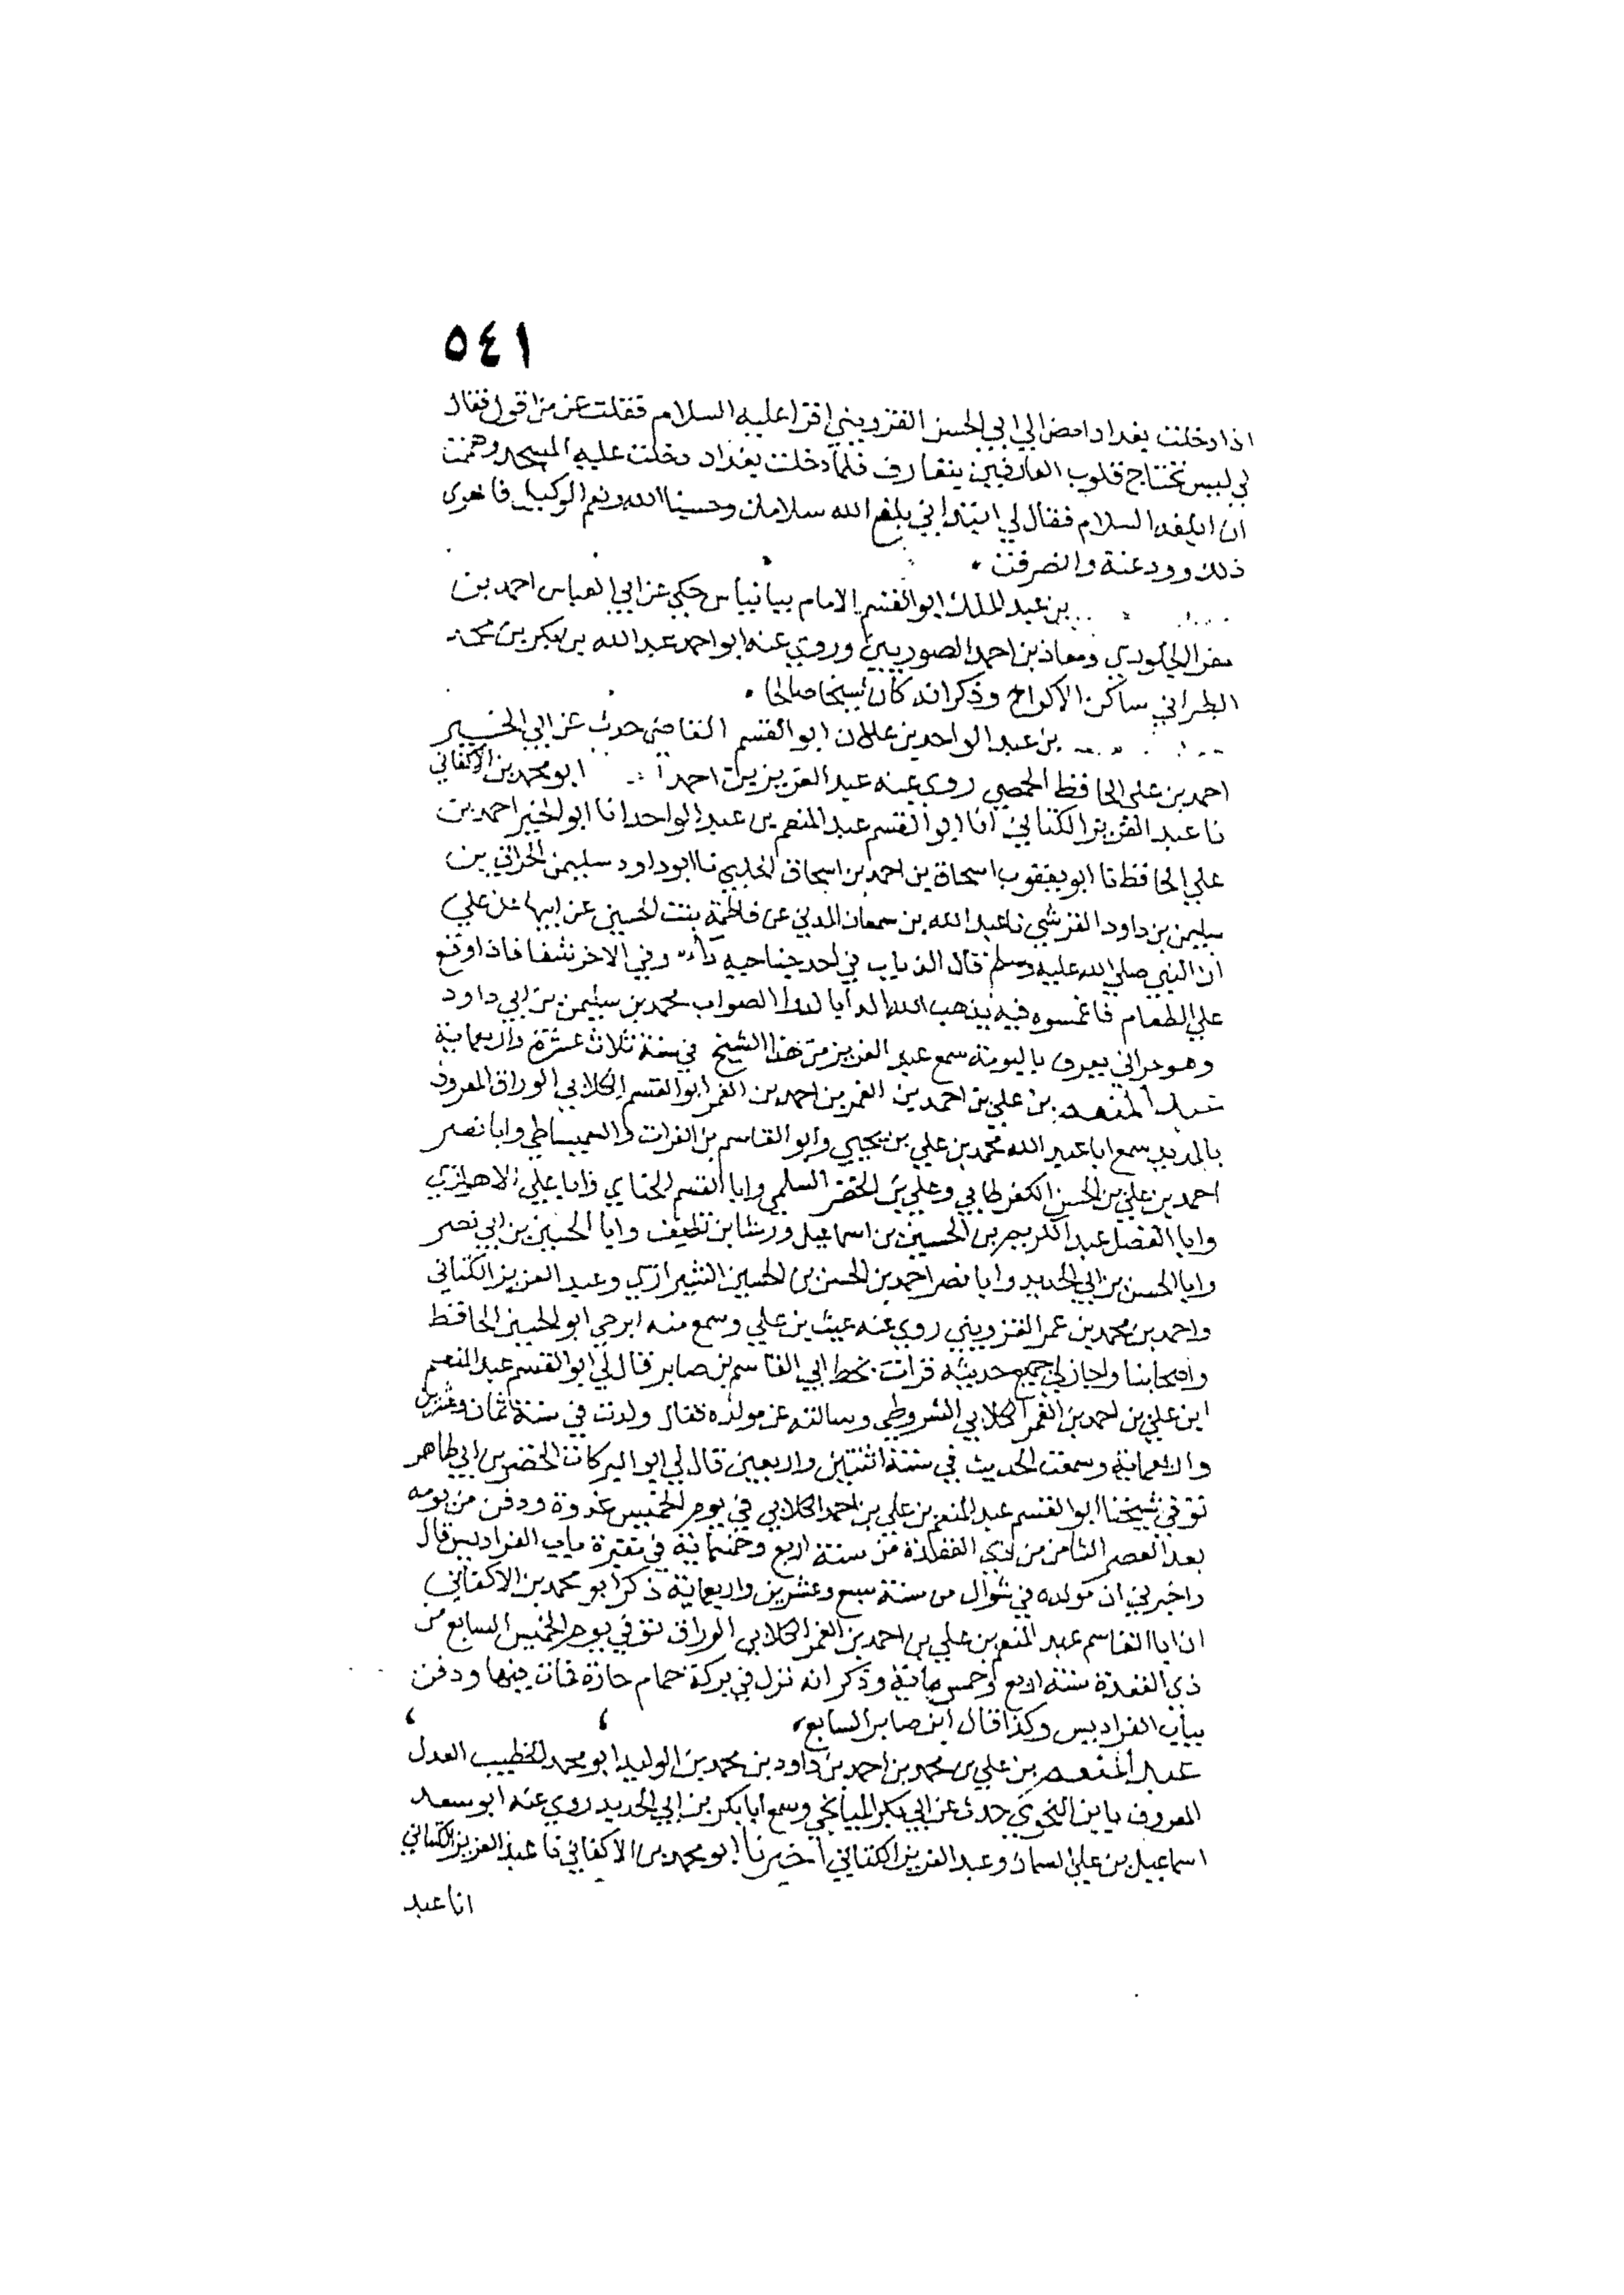 ٥٤١
اذا دخلت بغداد امض الي ابي الحسن القزويني اقرا عليه السلام فقلت عن من اقول فقال
لي ليس تحتاج قلوب العارفين يتعارف فلما دخلت بغداد دخلت عليه المسجد وهممت
ان ابلغه السلام فقال لي ابتدا ني بلغ الله سلامك وحسبنا الله ونعم الوكيل فا
ذلك وودعته وانصرفت
بن عبد الملك ابو القسم الامام ببانياس حكي عن ابي العباس احمد بن
الجلودي ومعاذ بن احمد الصوريين وروي عنه ابو احمد عبد الله بن بكر بن محمد
الطبراني ساكن الاكواخ وذكر انه كان شيخا صالحا
بن عبد الواحد بن علان ابو القسم القاضي حدث عن ابي الخير
احمد بن علي الحافظ الحمصي روي عنه عبد العزيز بن احمد ابو محمد بن الاكفاني
نا عبد العزيز الكتاني انا ابو القسم عبد المنعم بن عبد الواحد انا ابو الخير احمد بن
علي الحافظ نا ابو يعقوب اسحاق بن احمد بن اسحاق الحلبي نا ابو داود سليمن الحراني بن
سليمن بن داود القرشي نا عبد الله بن سمعان المدني عن فاطمة بنت الحسين عن ابيها عن علي
ان النبي صلي الله عليه وسلم قال الذباب في احد جناحيه داء وفي الاخر شفا فاذا وقع
علي الطعام فاغمسوه فيه يذهب الله الدا بالدوا الصواب محمد بن سليمن بن ابي داود
وهو حراني يعرف بالبومة سمع عبد العزيز من هذا الشيخ في سنة ثلاث عشرة واربعماية
عبد المنعم بن علي بن احمد بن الغمر بن احمد بن الغمر ابو القسم الكلابي الوراق المعروف
بالمديد سمع ابا عبد الله محمد بن علي بن يحيي وابو القاسم بن الفرات والسميساطي وابا نصر
احمد بن علي بن الحسن الكفرطابي وعلي بن الخضر السلمي وابا القسم الحناي وابا علي الاهوازي
وابا الفضل عبد الكريم بن الحسين بن اسماعيل ورشا بن نظيف وابا الحسين بن ابي نصر
وابا الحسن بن ابي الحديد وابا نصر احمد بن الحسن بن الحسين الشيرازي وعبد العزيز الكتاني
واحمد بن محمد بن عمر القزويني روي عنه غيث بن علي وسمع منه اخي ابو الحسين الحافظ
واصحابنا واجاز لي جميع حديثه قرات بخط ابي القاسم بن صابر قال لي ابو القسم عبد المنعم
ابن علي بن احمد بن الغمر الكلابي الشروطي وسالته عن مولده فقال ولدت في سنة ثمان وعشرين
واربعماية وسمعت الحديث في سنة اثنتين واربعين قال لي ابو البركات الخضر بن ابي طاهر
توفي شيخنا ابو القسم عبد المنعم بن علي بن احمد الكلابي في يوم الخميس غدوة ودفن من يومه
بعد العصر الثامن من ذي القعدة من سنة اربع وخمسماية في مقبرة باب الفراديس قال
واخبرني ان مولده في شوال من سنة سبع وعشرين واربعماية ذكر ابو محمد بن الاكفاني
ان ابا القاسم عبد المنعم بن علي بن احمد بن الغمر الكلابي الوراق توفي يوم الخميس السابع من
ذي القعدة سنة اربع وخمس ماية وذكر انه نزل في بركة حمام حارة فمات فيها ودفن
بباب الفراديس وكذا قال ابن صابر السابع
عبد المنعم بن علي بن محمد بن احمد بن داود بن محمد بن الوليد ابو محمد الخطيب العدل
المعروف بابن النحوي حدث عن ابي بكر الميانجي وسمع ابا بكر بن ابي الحديد روي عنه ابو سعد
اسماعيل بن علي السمان وعبد العزيز الكتاني اخبرنا ابو محمد بن الاكفاني نا عبد العزيز الكتاني
انا عبد